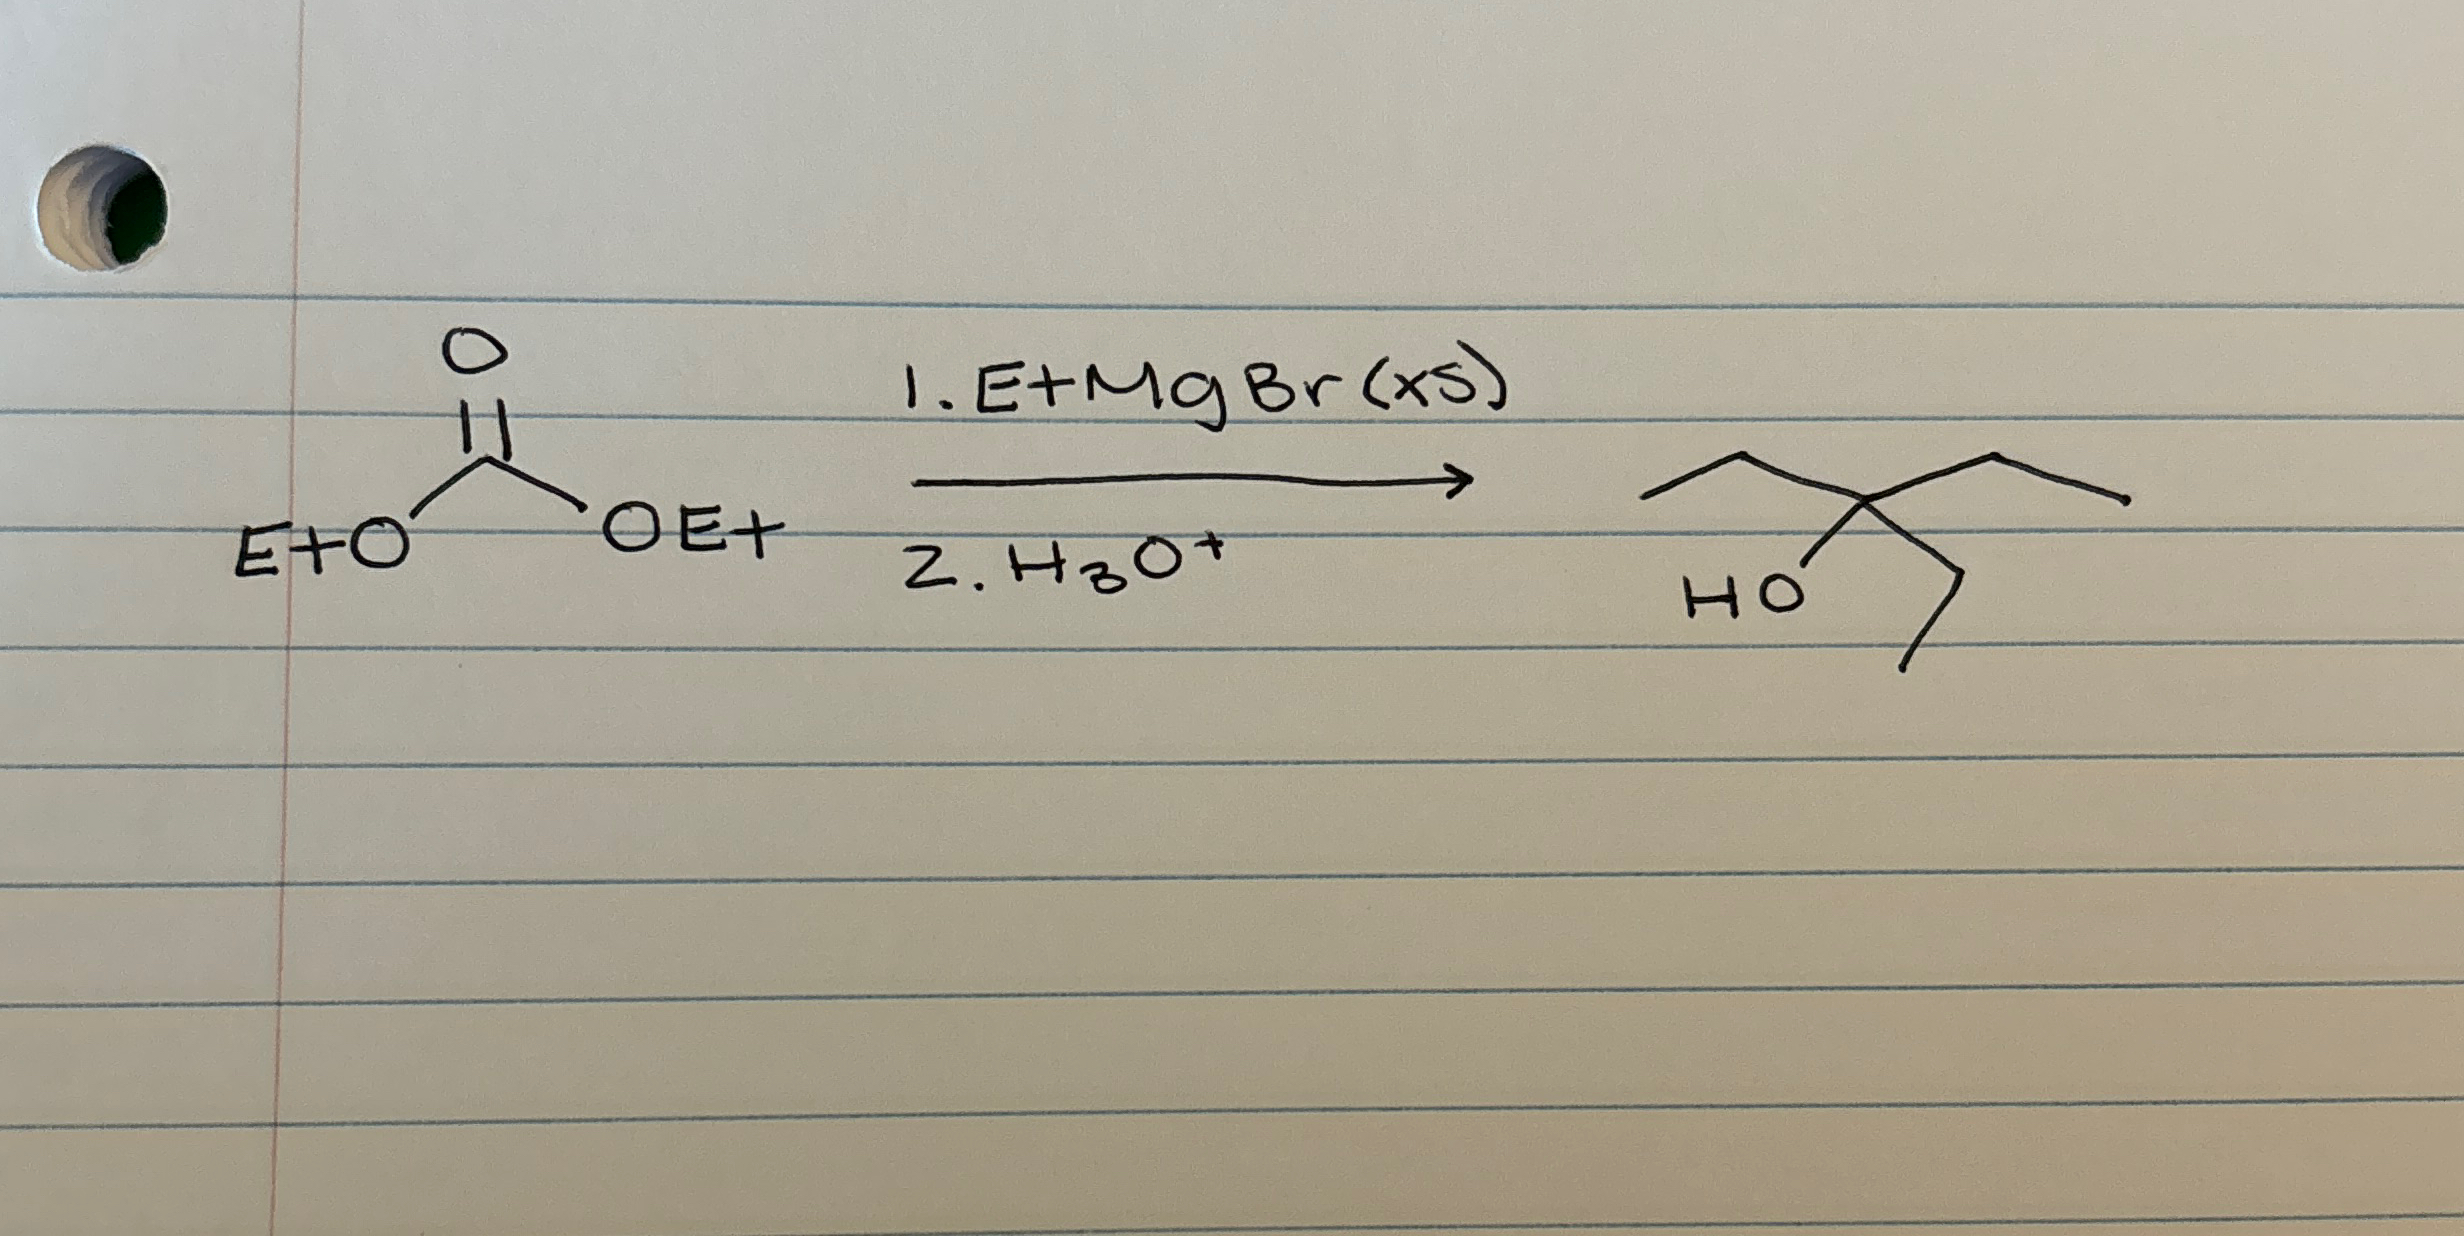 O
1. EtMgBr (xs)
EtO OEt
2. H₃O⁺
HO